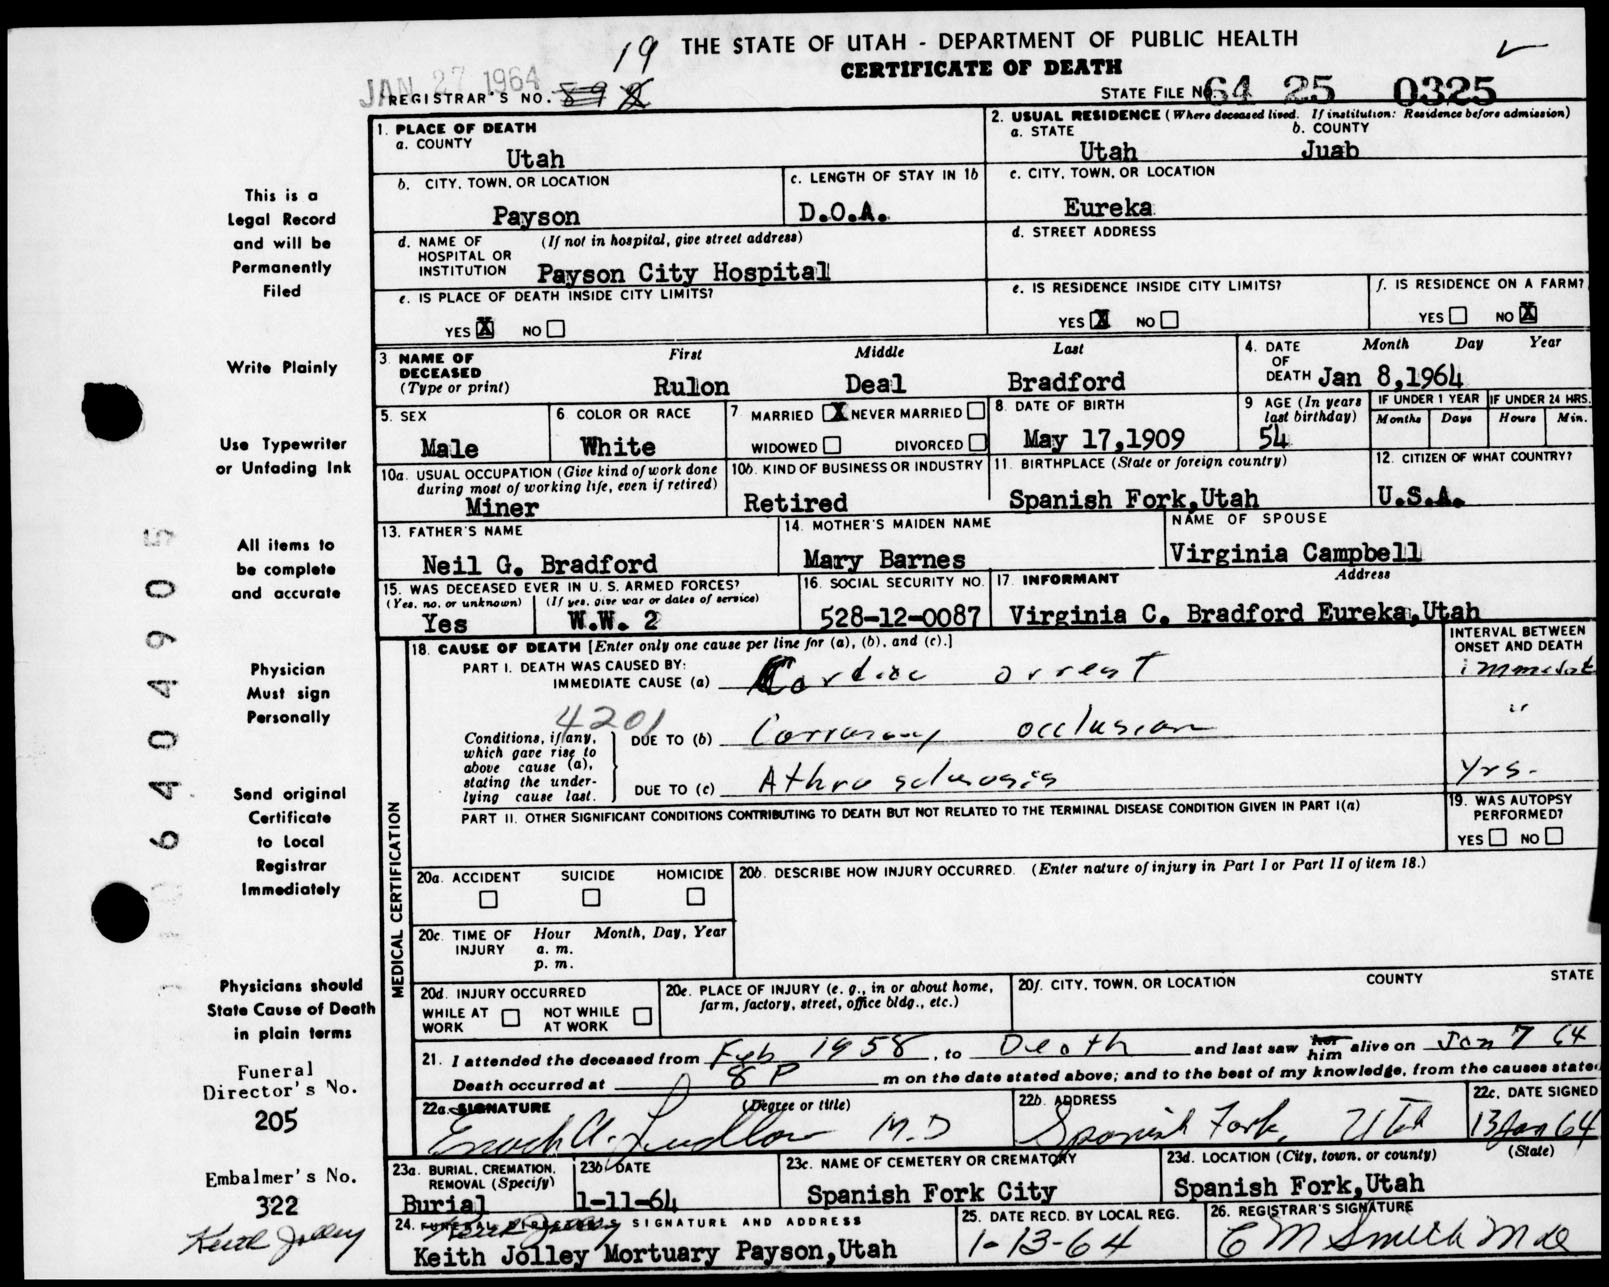 19 THE STATE OF UTAH - DEPARTMENT OF PUBLIC HEALTH
JAN 27 1964 CERTIFICATE OF DEATH
REGISTRAR'S NO. 89 STATE FILE NO. 64 25 0325
1. PLACE OF DEATH
a. COUNTY
Utah
2. USUAL RESIDENCE (Where deceased lived. If institution: Residence before admission)
a. STATE b. COUNTY
Utah Juab
b. CITY, TOWN, OR LOCATION
Payson
c. LENGTH OF STAY IN 1b
D.O.A.
c. CITY, TOWN, OR LOCATION
Eureka
d. NAME OF (If not in hospital, give street address)
HOSPITAL OR
INSTITUTION Payson City Hospital
d. STREET ADDRESS
e. IS PLACE OF DEATH INSIDE CITY LIMITS?
YES X NO
e. IS RESIDENCE INSIDE CITY LIMITS?
YES X NO
f. IS RESIDENCE ON A FARM?
YES NO X
3. NAME OF DECEASED (Type or print)
First Middle Last
Rulon Deal Bradford
4. DATE OF DEATH
Month Day Year
Jan 8,1964
5. SEX
Male
6. COLOR OR RACE
White
7 MARRIED X NEVER MARRIED
WIDOWED DIVORCED
8. DATE OF BIRTH
May 17,1909
9 AGE (In years last birthday)
54
IF UNDER 1 YEAR IF UNDER 24 HRS.
Months Days Hours Min.
10a. USUAL OCCUPATION (Give kind of work done
during most of working life, even if retired)
Miner
10b. KIND OF BUSINESS OR INDUSTRY
Retired
11. BIRTHPLACE (State or foreign country)
Spanish Fork,Utah
12. CITIZEN OF WHAT COUNTRY?
U.S.A.
13. FATHER'S NAME
Neil G. Bradford
14. MOTHER'S MAIDEN NAME
Mary Barnes
NAME OF SPOUSE
Virginia Campbell
15. WAS DECEASED EVER IN U. S. ARMED FORCES?
(Yes, no, or unknown) (If yes, give war or dates of service)
Yes W.W. 2
16. SOCIAL SECURITY NO.
528-12-0087
17. INFORMANT Address
Virginia C. Bradford Eureka,Utah
MEDICAL CERTIFICATION
18. CAUSE OF DEATH [Enter only one cause per line for (a), (b), and (c).]
INTERVAL BETWEEN
ONSET AND DEATH
PART I. DEATH WAS CAUSED BY:
IMMEDIATE CAUSE (a) Cardiac arrest immediat
4201
Conditions, if any,
which gave rise to
above cause (a),
stating the under-
lying cause last.
DUE TO (b) Corronary occlusion "
DUE TO (c) Athrosclerosis yrs.
PART II. OTHER SIGNIFICANT CONDITIONS CONTRIBUTING TO DEATH BUT NOT RELATED TO THE TERMINAL DISEASE CONDITION GIVEN IN PART I(a)
19. WAS AUTOPSY
PERFORMED?
YES NO
20a. ACCIDENT SUICIDE HOMICIDE
20b. DESCRIBE HOW INJURY OCCURRED. (Enter nature of injury in Part I or Part II of item 18.)
20c. TIME OF INJURY
Hour Month, Day, Year
a. m.
p. m.
20d. INJURY OCCURRED
WHILE AT WORK NOT WHILE AT WORK
20e. PLACE OF INJURY (e. g., in or about home,
farm, factory, street, office bldg., etc.)
20f. CITY, TOWN, OR LOCATION COUNTY STATE
21. I attended the deceased from Feb 1958, to Death and last saw her him alive on Jan 7 64
Death occurred at 8 P m on the date stated above; and to the best of my knowledge, from the causes stated
22a. SIGNATURE (Degree or title)
Enoch A. Ludlow M.D
22b. ADDRESS
Spanish Fork, Utah
22c. DATE SIGNED
13 Jan 64
23a. BURIAL, CREMATION,
REMOVAL (Specify)
Burial
23b. DATE
1-11-64
23c. NAME OF CEMETERY OR CREMATORY
Spanish Fork City
23d. LOCATION (City, town, or county) (State)
Spanish Fork,Utah
24. FUNERAL DIRECTOR'S SIGNATURE AND ADDRESS
Keith Jolley
Keith Jolley Mortuary Payson,Utah
25. DATE RECD. BY LOCAL REG.
1-13-64
26. REGISTRAR'S SIGNATURE
C M Smith M D
This is a
Legal Record
and will be
Permanently
Filed
Write Plainly
Use Typewriter
or Unfading Ink
All items to
be complete
and accurate
Physician
Must sign
Personally
Send original
Certificate
to Local
Registrar
Immediately
Physicians should
State Cause of Death
in plain terms
Funeral
Director's No.
205
Embalmer's No.
322
Keith Jolley